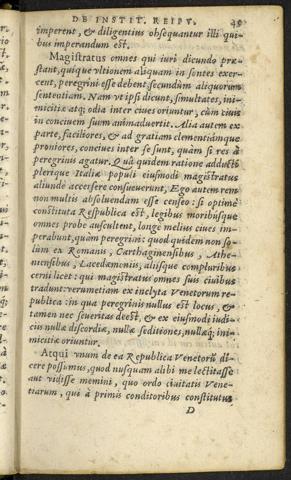 DE INSTIT. REIPV. 49
imperent, & diligentius obsequantur illi qui-
bus imperandum est.
Magistratus omnes qui iuri dicundo præ-
stant, quiq́ue vltionem aliquam in sontes exer-
cent, peregrini esse debent, secundùm aliquorum
sententiam. Nam vt ipsi dicunt, simultates, ini-
micitiæ atq; odia inter ciues oriuntur, cùm ciuis
in conciuem suum animaduertit. Alia autem ex
parte, faciliores, & ad gratiam clementiámque
proniores, conciues inter se sunt, quàm si res à
peregrinis agatur. Quâ quidem ratione adducti
plerique Italiæ populi eiusmodi magistratus
aliunde accersere consueuerunt, Ego autem rem
non multis absoluendam esse censeo: si optimè
constituta Respublica est, legibus moribusque
omnes probè auscultent, longè melius ciues im-
perabunt, quàm peregrini: quod quidem non so-
lùm ex Romanis, Carthaginensibus, Athe-
niensibus, Lacedæmoniis, aliisque compluribus
cerni licet: qui magistratus omnes suis ciuibus
tradunt: verumetiam ex inclyta Venetorum re-
publica: in qua peregrinis nullus est locus, &
tamen nec seueritas deest, & ex eiusmodi iudi-
ciis nullæ discordiæ, nullæ seditiones, nullæq́; ini-
micitiæ oriuntur.
Atqui vnum de ea Republica Venetorũ di-
cere possumus, quod nusquam alibi me lectitasse
aut vidisse memini, quo ordo ciuitatis Vene-
tiarum, qui à primis conditoribus constitutus
D